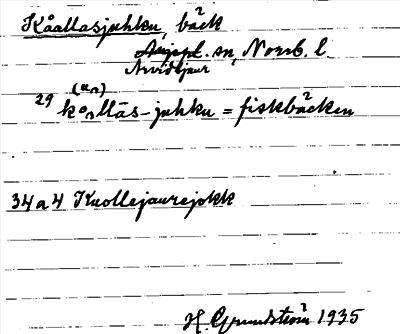 Kåallasjuhku, bäck
Arjepl. sn, Norrb. l.
Arvidsjaur
29 (uo)
koллās-juhku = fiskbäcken
34a4 Kuollejaurejokk
H. Grundström 1935